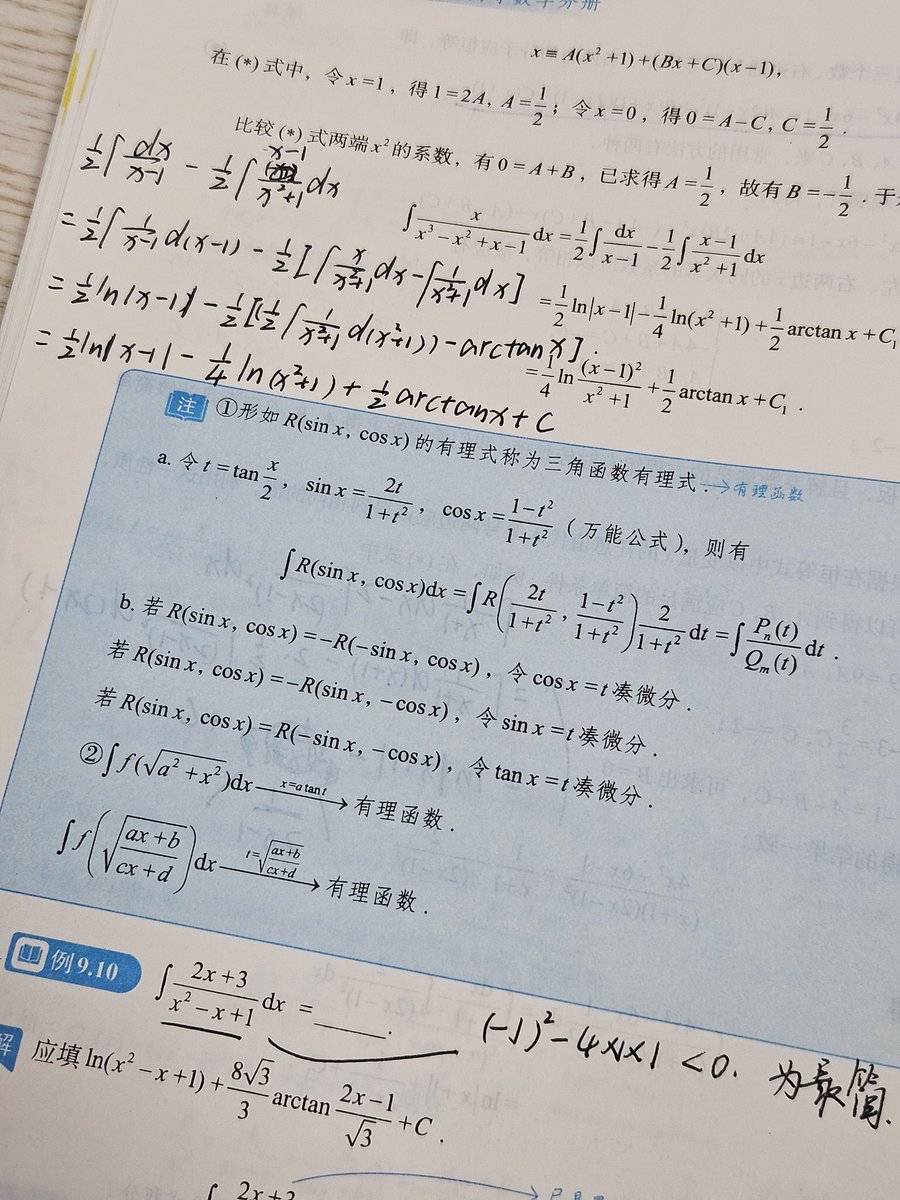 x≡A(x²+1)+(Bx+C)(x−1),
在(*)式中，令x=1，得1=2A, A=1/2；令x=0，得0=A−C, C=1/2.
比较(*)式两端x²的系数，有0=A+B，已求得A=1/2，故有B=−1/2. 于
∫ x/(x³−x²+x−1) dx = 1/2 ∫ dx/(x−1) − 1/2 ∫ (x−1)/(x²+1) dx
= 1/2 ln|x−1| − 1/4 ln(x²+1) + 1/2 arctan x + C₁
= 1/4 ln (x−1)²/(x²+1) + 1/2 arctan x + C₁ .
1/2 ∫ dx/(x−1) − 1/2 ∫ (x−1)/(x²+1) dx
= 1/2 ∫ 1/(x−1) d(x−1) − 1/2 [∫ x/(x²+1) dx − ∫ 1/(x²+1) dx]
= 1/2 ln|x−1| − 1/2 [(1/2 ∫ 1/(x²+1) d(x²+1)) − arctan x] .
= 1/2 ln|x−1| − 1/4 ln(x²+1) + 1/2 arctanx + C
注 ①形如R(sin x, cos x)的有理式称为三角函数有理式. →有理函数
a. 令t=tan x/2，sin x = 2t/(1+t²)，cos x = (1−t²)/(1+t²)（万能公式），则有
∫R(sin x, cos x)dx = ∫R(2t/(1+t²), (1−t²)/(1+t²)) 2/(1+t²) dt = ∫ Pₙ(t)/Qₘ(t) dt .
b. 若R(sin x, cos x)=−R(−sin x, cos x)，令cos x=t凑微分.
若R(sin x, cos x)=−R(sin x, −cos x)，令sin x=t凑微分.
若R(sin x, cos x)=R(−sin x, −cos x)，令tan x=t凑微分.
②∫f(√(a²+x²))dx —x=a tan t→ 有理函数.
∫f(√((ax+b)/(cx+d)))dx —t=√((ax+b)/(cx+d))→ 有理函数.
例9.10 ∫ (2x+3)/(x²−x+1) dx = ____.
(−1)²−4×1×1 <0. 为最简.
解 应填ln(x²−x+1)+ 8√3/3 arctan (2x−1)/√3 +C .